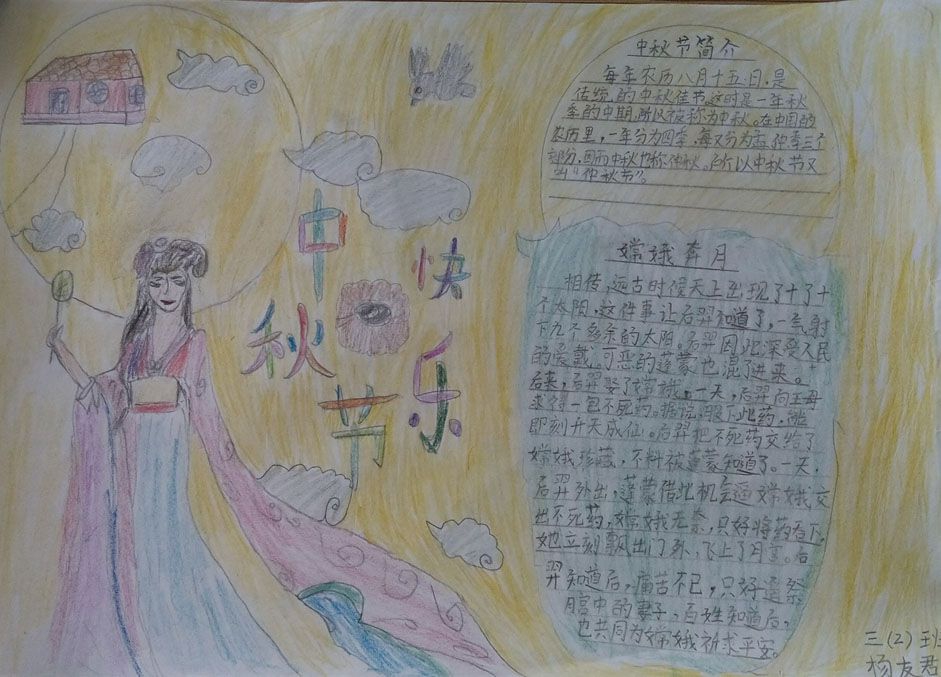 中秋节快乐
中秋节简介
每年农历八月十五日,是
传统的中秋佳节。这时是一年秋
季的中期,所以被称为中秋。在中国的
农历里,一年分为四季,每又分为孟、仲、季三个
部份,因而中秋也称仲秋。所以中秋节又
叫“仲秋节”。
嫦娥奔月
相传,远古时候天上出现了十了十
个太阳,这件事让后羿知道了,一气射
下九个多余的太阳。后羿因此深受人民
的爱戴。可恶的蓬蒙也混了进来。
后来,后羿娶了嫦娥。一天,后羿向王母
求得一包不死药。据说,服下此药,能
即刻升天成仙。后羿把不死药交给了
嫦娥珍藏,不料被蓬蒙知道了。一天,
后羿外出,蓬蒙借此机会逼嫦娥交
出不死药,嫦娥无奈,只好将药吞下。
她立刻飘出门外,飞上了月宫。后
羿知道后,痛苦不已,只好遥祭
月宫中的妻子,百姓知道后,
也共同为嫦娥祈求平安。
三(2)班
杨友君